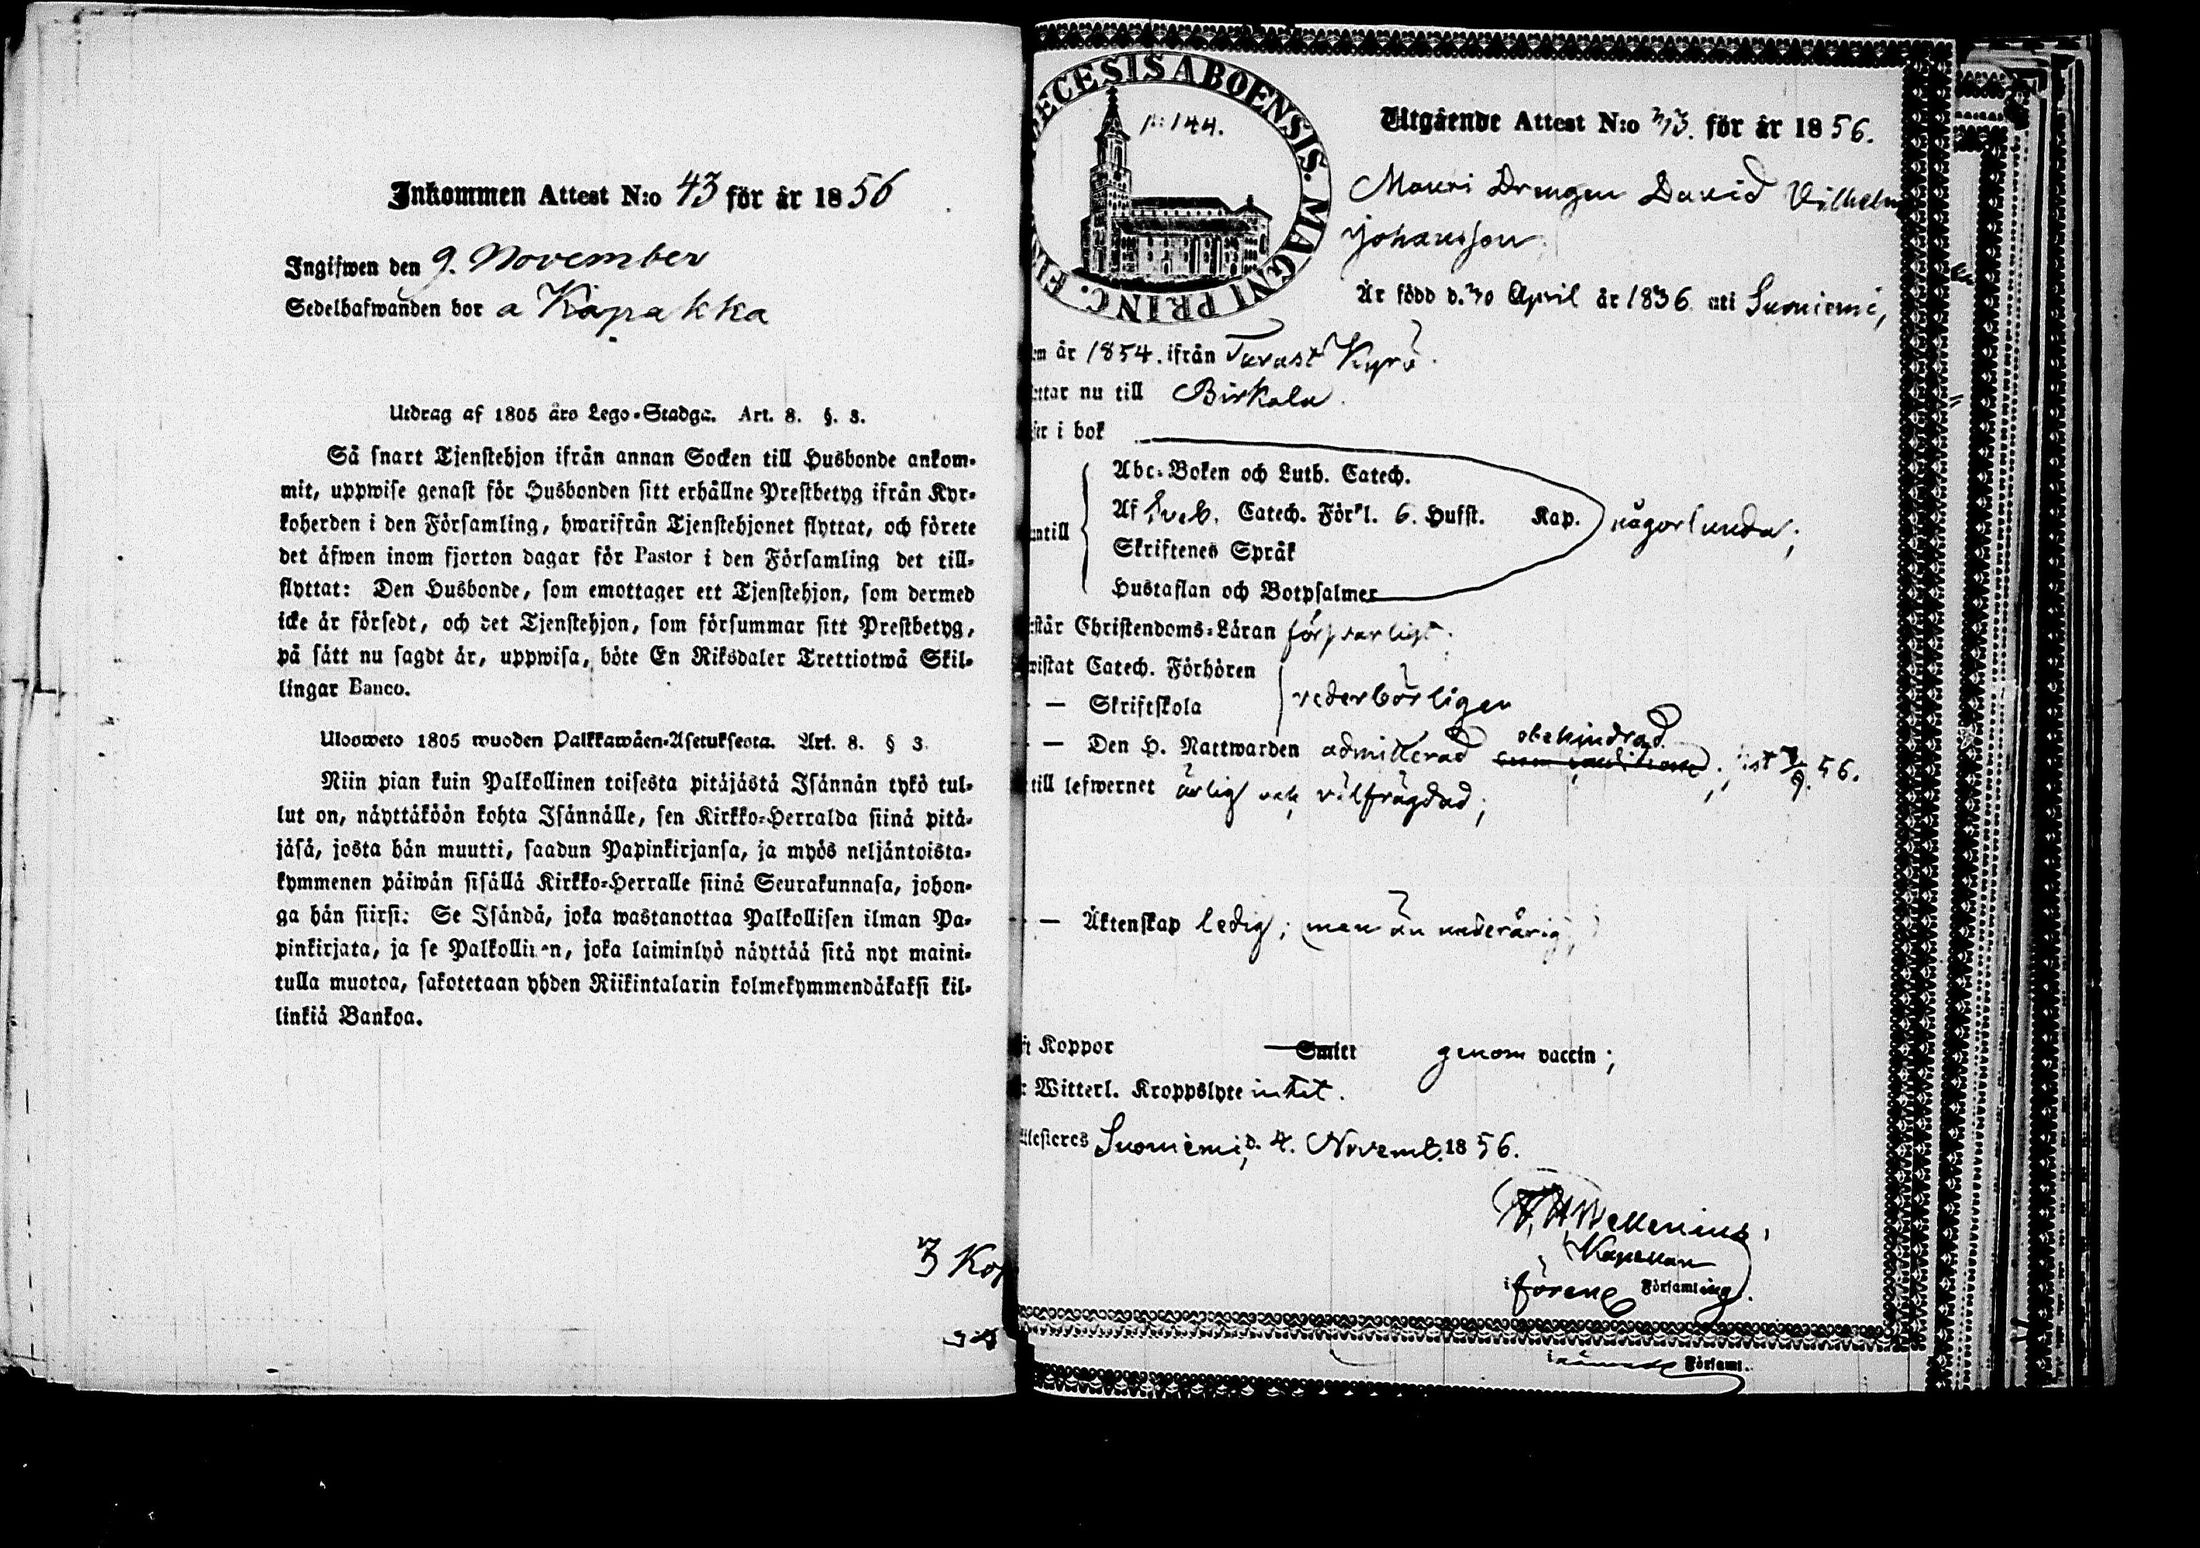 Inkommen Attest N:o 43 för år 1856
Ingifwen den 9. November
Sedelhafwanden bor a Kapakka
Utdrag af 1805 års Lego-Stadga. Art. 8. §. 3.
Så snart Tjenstehjon ifrån annan Socken till Husbonde ankom-
mit, uppwise genast för Husbonden sitt erhållne Prestbetyg ifrån Kyr-
koherden i den Församling, hwarifrån Tjenstehjonet flyttat, och förete
det äfwen inom fjorton dagar för Pastor i den Församling det till-
flyttat: Den Husbonde, som emottager ett Tjenstehjon, som dermed
icke är försedt, och det Tjenstehjon, som försummar sitt Prestbetyg,
på sätt nu sagdt är, uppwisa, böte En Riksdaler Trettiotwå Skil-
lingar Banco.
Ulosweto 1805 wuoden Palkkawäen-Asetuksesta. Art. 8. § 3.
Niin pian kuin Palkollinen toisesta pitäjästä Isännän tykö tul-
lut on, näyttäköön kohta Isännälle, sen Kirkko-Herralda siinä pitä-
jäsä, josta hän muutti, saadun Papinkirjansa, ja myös neljäntoista-
kymmenen päiwän sisällä Kirkko-Herralle siinä Seurakunnasa, johon-
ga hän siirsi: Se Isändä, joka wastanottaa Palkollisen ilman Pa-
pinkirjata, ja se Palkollinen, joka laiminlyö näyttää sitä nyt maini-
tulla muotoa, sakotetaan yhden Riikintalarin kolmekymmendäkaksi kil-
linkiä Bankoa.
3 Kop
ECESIS ABOENSIS. MAGNI PRINC. FIN
p: 144.
Utgående Attest N:o 33. för år 1856.
Mauri Drengen David Vilhelm
Johansson
Är född d. 30 April år 1836 uti Suoniemi,
om år 1854. ifrån Tavast Kyrö.
ttar nu till Birkala.
er i bok
Abc-Boken och Luth. Catech.
Af Sveb. Catech. Förkl. 6. Hufst. Kap. någorlunda;
antill
Skriftenes Språk
Hustaflan och Botpsalmer
rstår Christendoms-Läran försvarligt.
wistat Catech. Förhören
— Skriftskola vederbörligen
obehindrad
— Den H. Nattwarden admitterad sist 7/9. 56.
till lefwernet ärlig och välfrägdad;
— Äktenskap ledig; men än underårig;
ft Koppor Smitt genom vaccin;
r Witterl. Kroppslyte intet.
ttesteres Suoniemi, d. 4. Novemb. 1856.
Wellenius,
Kapellan
i förend Församling.
i Församl.